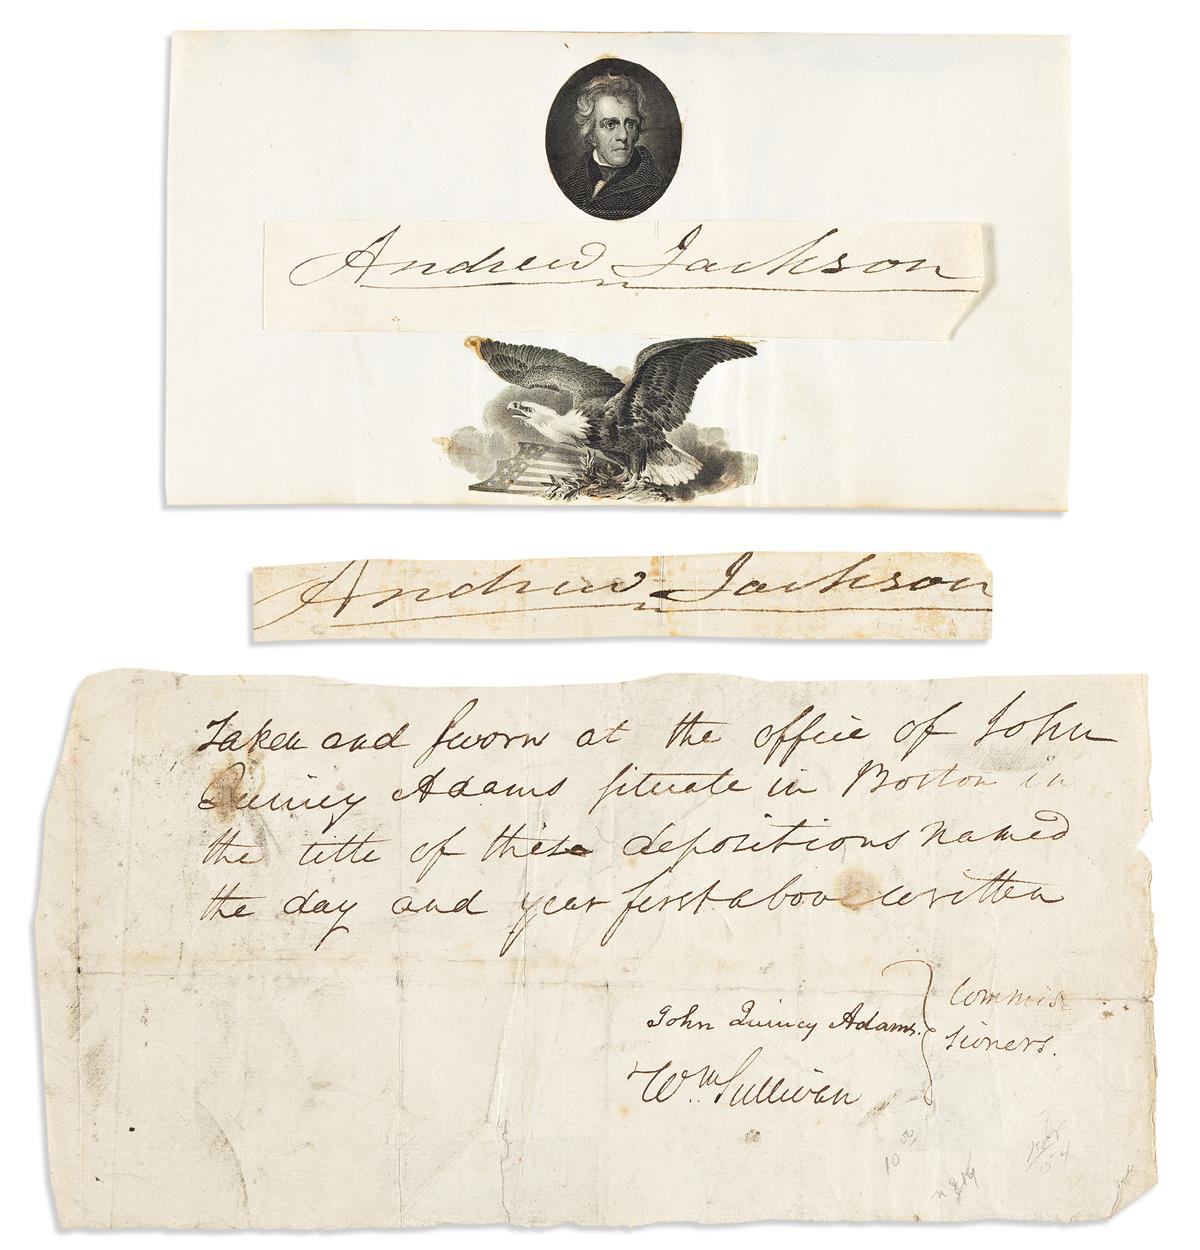 Andrew Jackson
Andrew Jackson
Taken and Sworn at the office of John
Quincy Adams situate in Boston in
the title of these depositions named
the day and year first above written
John Quincy Adams. } Commis-
Wm Sullivan } sioners.
10